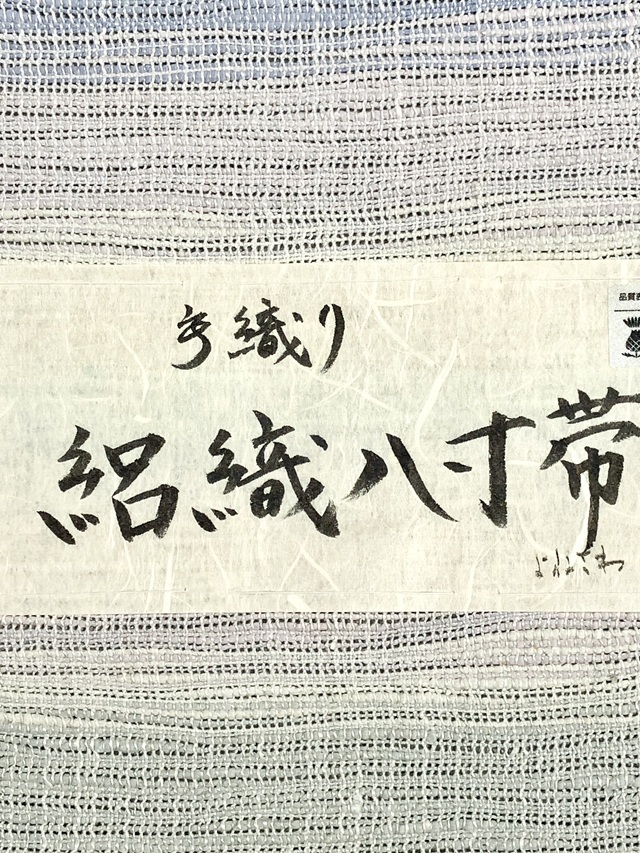 手織り
品質
絽織八寸帯
よねざわ